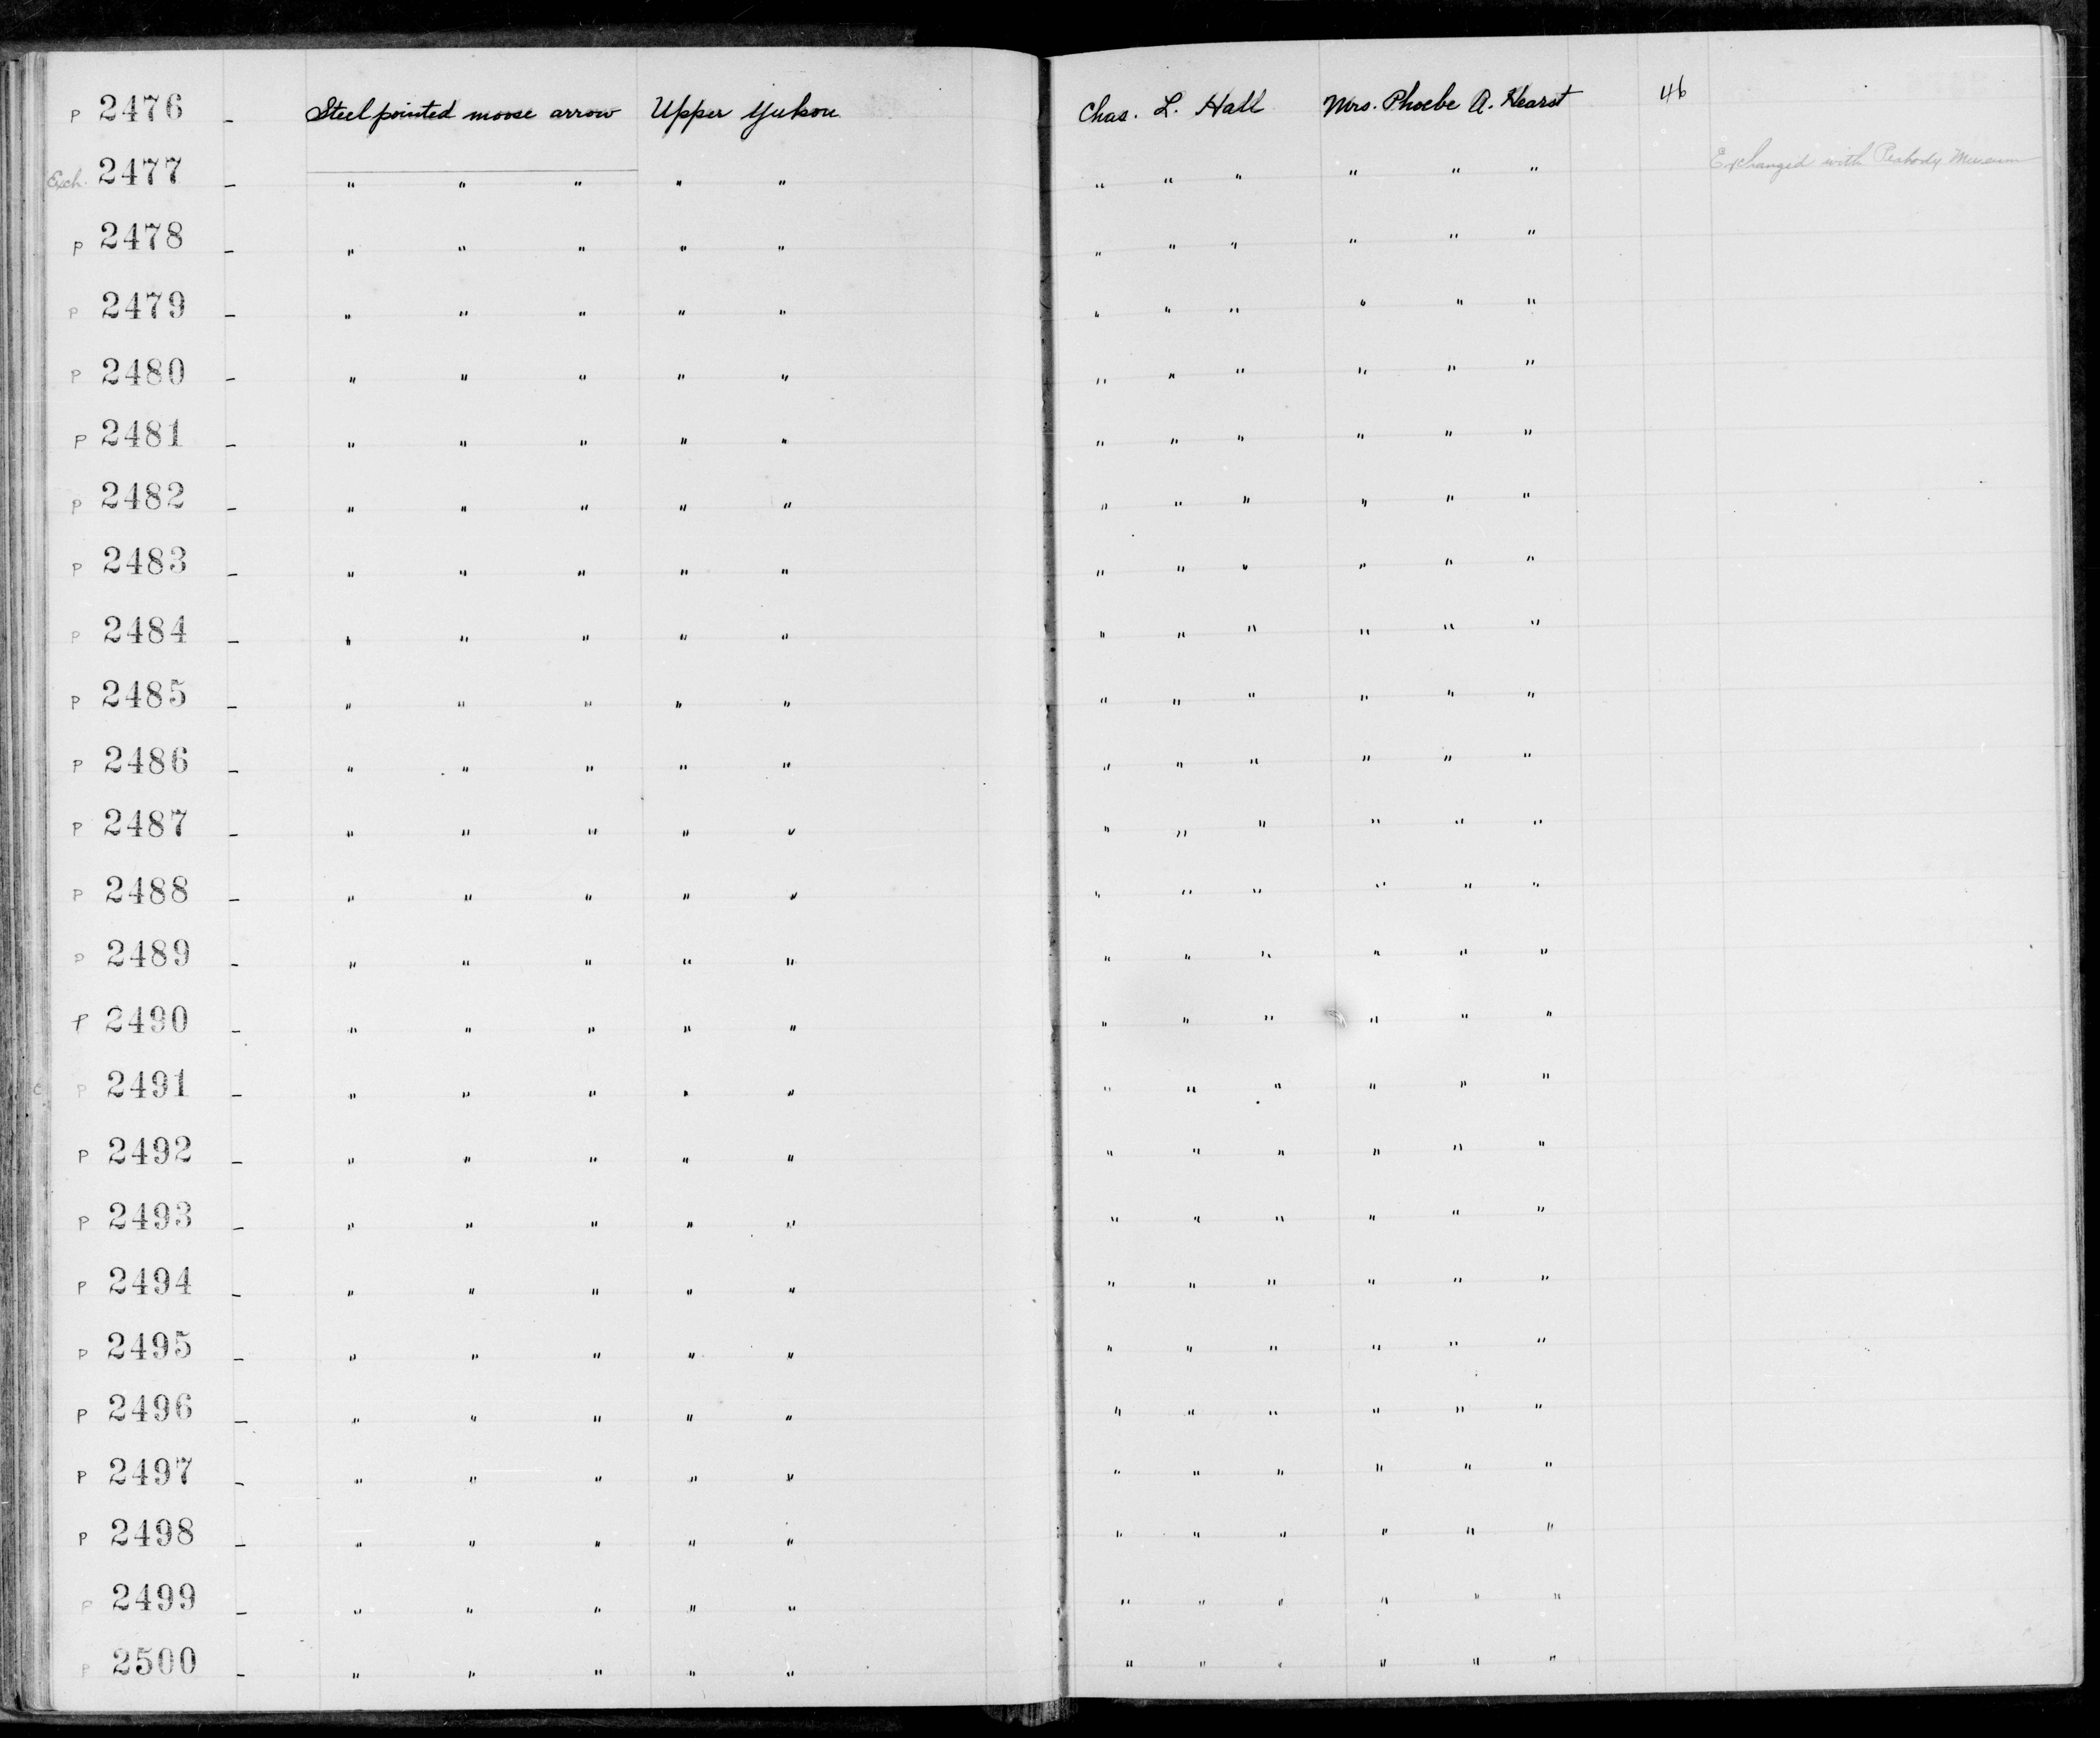 P 2476 - Steel pointed moose arrow Upper Yukon Chas. L. Hall Mrs. Phoebe A. Hearst 46
Exch. 2477 - " " " " " " " " " " " Exchanged with Peabody Museum
P 2478 - " " " " " " " " " " "
P 2479 - " " " " " " " " " " "
P 2480 - " " " " " " " " " " "
P 2481 - " " " " " " " " " " "
P 2482 - " " " " " " " " " " "
P 2483 - " " " " " " " " " " "
P 2484 - " " " " " " " " " " "
P 2485 - " " " " " " " " " " "
P 2486 - " " " " " " " " " " "
P 2487 - " " " " " " " " " " "
P 2488 - " " " " " " " " " " "
P 2489 - " " " " " " " " " " "
P 2490 - " " " " " " " " " " "
P 2491 - " " " " " " " " " " "
P 2492 - " " " " " " " " " " "
P 2493 - " " " " " " " " " " "
P 2494 - " " " " " " " " " " "
P 2495 - " " " " " " " " " " "
P 2496 - " " " " " " " " " " "
P 2497 - " " " " " " " " " " "
P 2498 - " " " " " " " " " " "
P 2499 - " " " " " " " " " " "
P 2500 - " " " " " " " " " " "